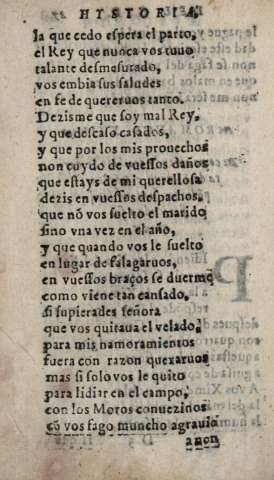 HYSTORIA,
la que cedo espera el parto,
el Rey que nunca vos tuuo
talante desmesurado,
vos embia sus saludes
en fe de quereruos tanto.
Dezisme que soy mal Rey,
y que descaso casados,
y que por los mis prouechos
non cuydo de vuessos daños
que estays de mi querellosa
dezis en vuessos despachos,
que nõ vos suelto el marido
sino vna vez en el año,
y que quando vos le suelto
en lugar de falagaruos,
en vuessos braços se duerme
como viene tan cansado,
si supierades señora
que vos quitaua el velado,
para mis namoramientos
fuera con razon quexaruos
mas si solo vos le quito
para lidiar en el campo,
con los Moros conuezinos
cõ vos fago muncho agrauio
auon